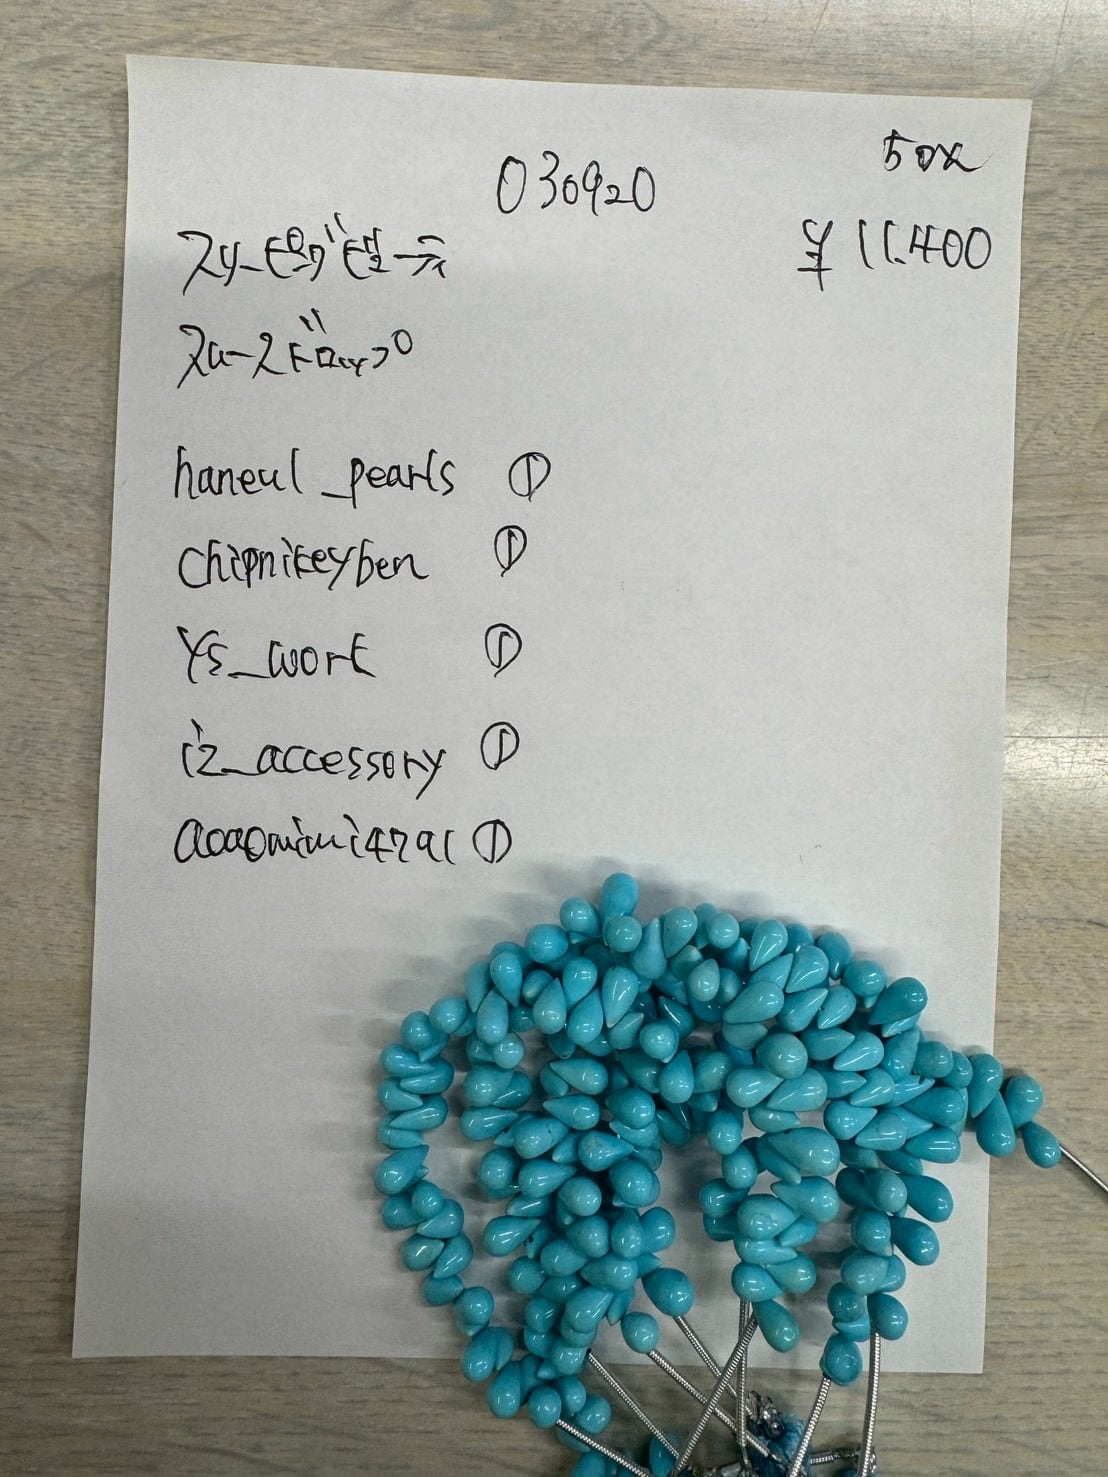 030920
50%
¥11.400
スリーピングビューティ
スムースドロップ
haneul_pearls ①
chipnikeyben ①
Ys_work ①
iz_accessory ①
①